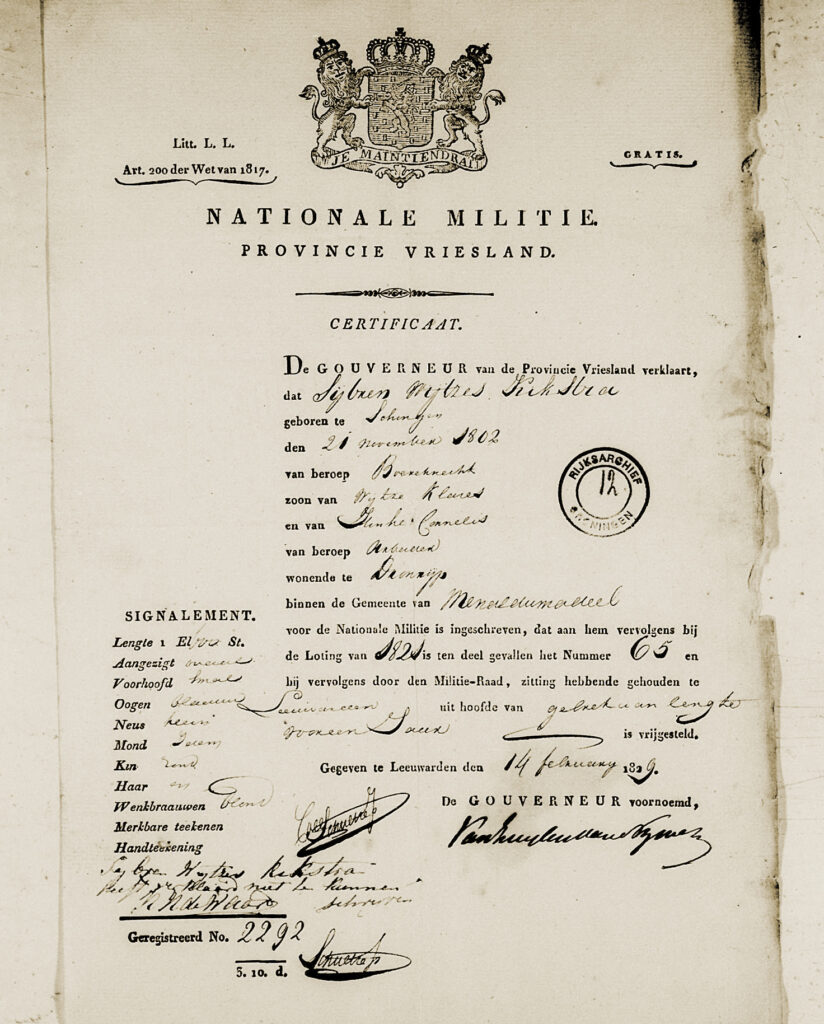 JE MAINTIENDRAI
Litt. L. L.
Art. 200 der Wet van 1817.
GRATIS.
NATIONALE MILITIE.
PROVINCIE VRIESLAND.
CERTIFICAAT.
De GOUVERNEUR van de Provincie Vriesland verklaart,
dat Sijbren Wijtzes Kikstra
geboren te Schingen
den 21 november 1802
van beroep Boereknecht
zoon van Wijtze Klases
en van Cornelis
van beroep Arbeider
wonende te Dronrijp
binnen de Gemeente van Menaldumadeel
voor de Nationale Militie is ingeschreven, dat aan hem vervolgens bij
de Loting van 1821 is ten deel gevallen het Nummer 65 en
bij vervolgens door den Militie-Raad, zitting hebbende gehouden te
Leeuwarden uit hoofde van gebrek aan lengte
voor een Jaar is vrijgesteld.
Gegeven te Leeuwarden den 14 february 1829.
De GOUVERNEUR voornoemd,
RIJKSARCHIEF
12
GRONINGEN
SIGNALEMENT.
Lengte 1 El St.
Aangezigt ovaal
Voorhoofd smal
Oogen blaauw
Neus klein
Mond
Kin rond
Haar en
Wenkbraauwen blond
Merkbare teekenen
Handteekening
Sijbren Wijtzes Kikstra
heeft verklaard niet te kunnen
schrijven
de Waard
Geregistreerd No. 2292
3. 10. d.